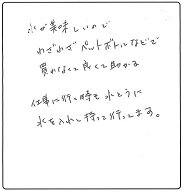 水が美味しいので
わざわざペットボトルなどで
買わなくて良くて助かる
仕事に行く時も水とうに
水を入れて持って行ってます。